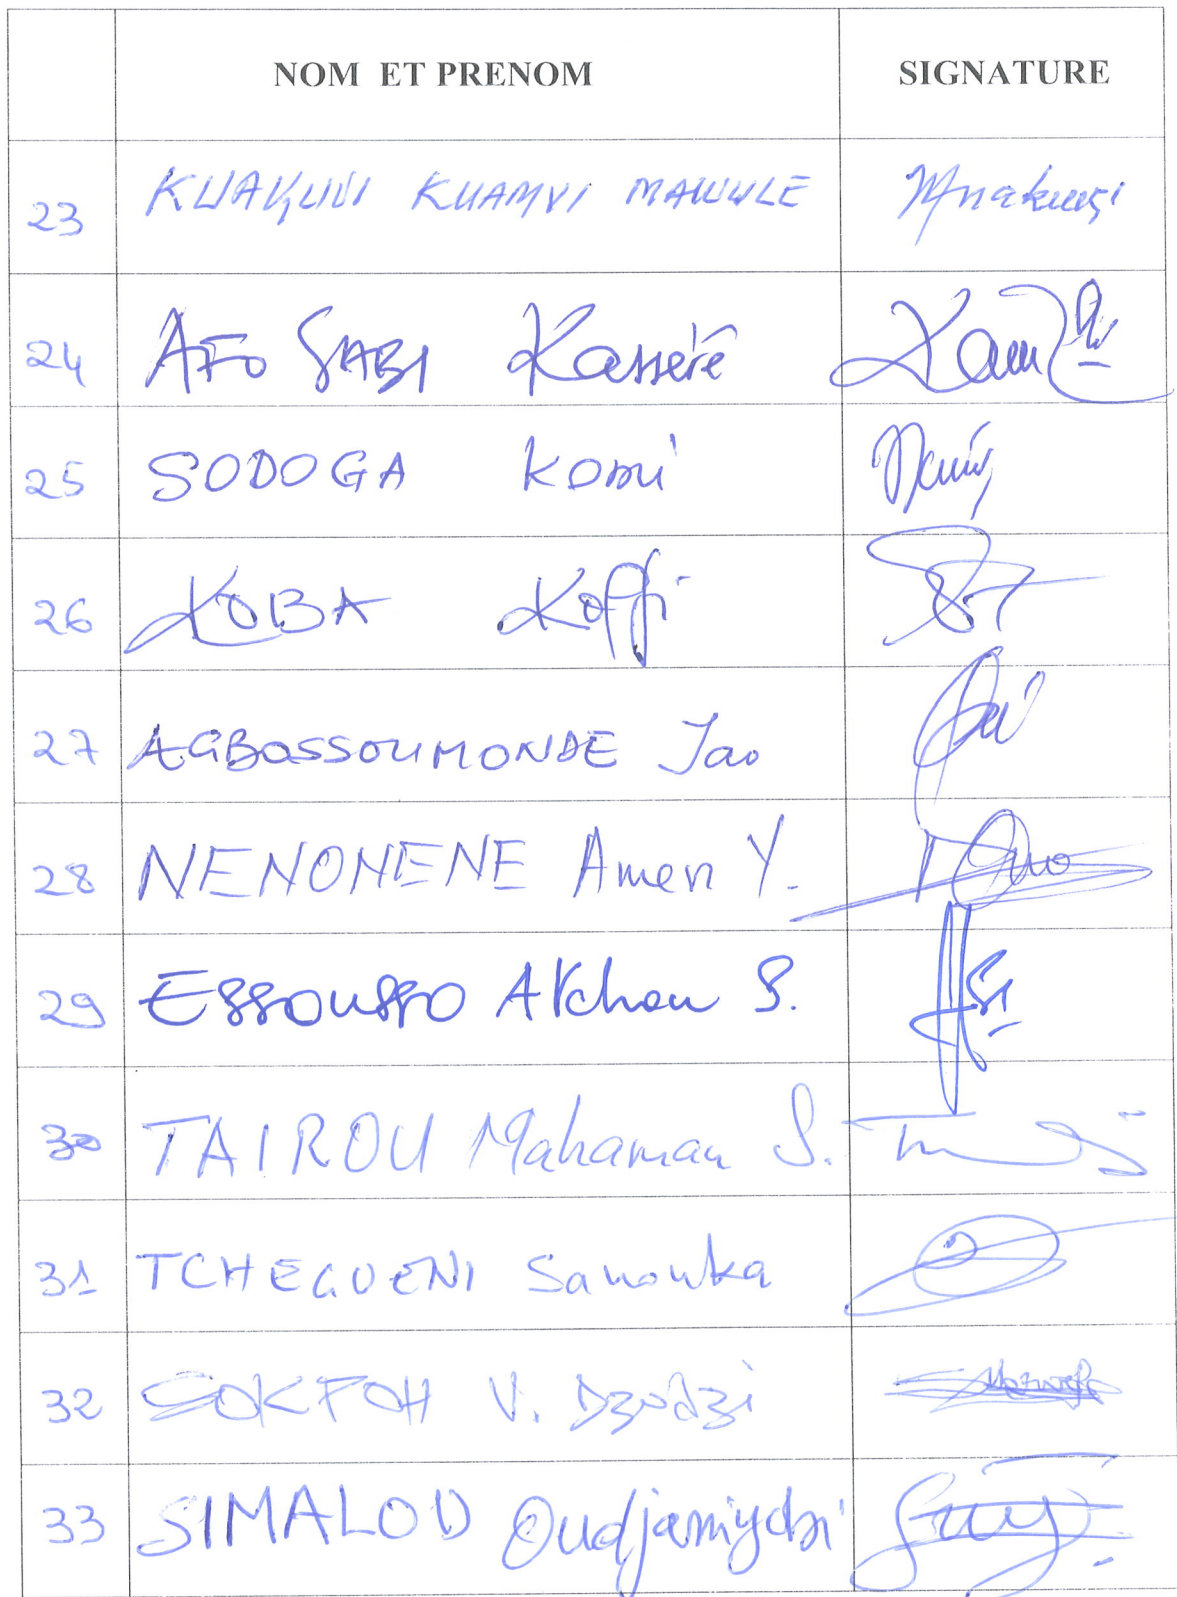 NOM ET PRENOM SIGNATURE
23 KUAKUVI KUAMVI MAWULE
24 AFO SABI Kasséré
25 SODOGA Komi
26 KOBA Koffi
27 AGBOSSOUMONDE Yao
28 NENONENE Amen Y.
29 ESSOUSSO Akhou S.
30 TAIROU Mahaman S.
31 TCHEGUENI Sanouka
32 SOKEOH V. Dzodzi
33 SIMALOU